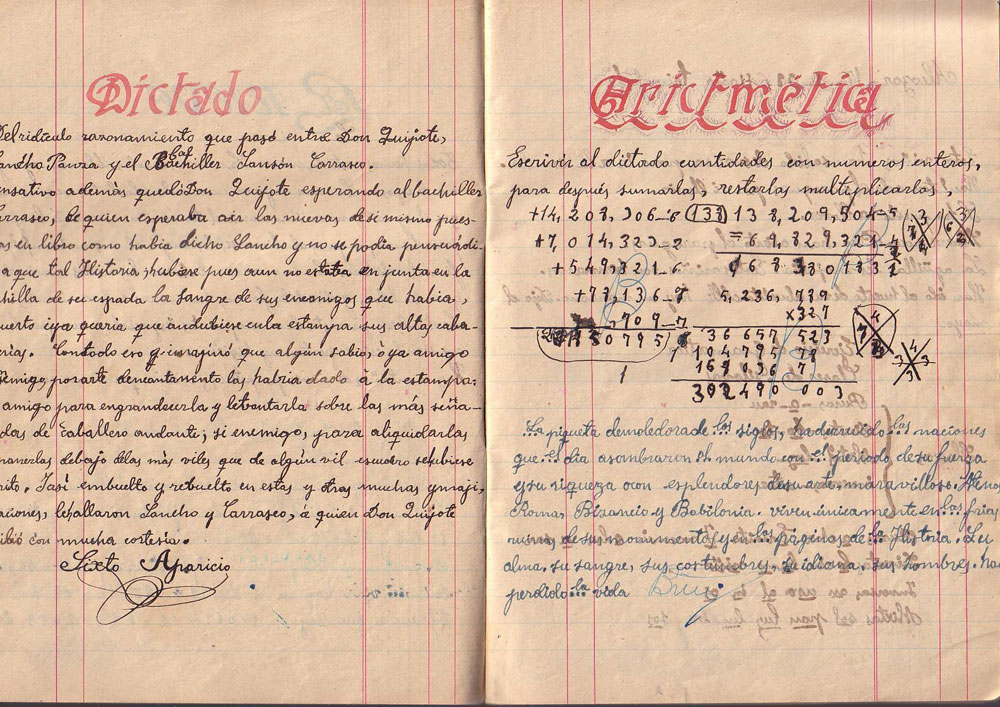 Dictado
Del ridículo razonamiento que pasó entre Don Quijote,
Sancho Panza y el Bachiller Sansón Carrasco.
ensativo además quedó Don Quijote esperando al bachiller
arrasco, de quien esperaba oir las nuevas de si mismo pues-
as en libro como habia dicho Sancho y no se podia
a que tal Historia hubiese pues aun no estaba en junta en la
hilla de su espada la sangre de sus enemigos que habia,
uerto iya queria que andubiese en la estampa sus altas caba-
rias. Contodo eso imajinó que algún sabio, ó ya amigo
emigo, por arte dencantamento las habria dado á la estampa:
amigo para engrandecerla y lebantarla sobre las más seña-
das de caballero andante; si enemigo, para aliquidarlas
ponerlas debajo delas más viles que de algún vil escudero sehubiese
rito. Iasí embuelto y rebuelto en estas y otras muchas ymaji,
aciones, lehallaron Sancho y Carrasco, á quien Don Quijote
ibió con mucha cortesia.
Sixto Aparicio
Arictmética
Escrivir al dictado cantidades con numeros enteros,
para después sumarlas, restarlas multiplicarlas,
+14,208,306-8 133 138,209,504-5
+7,014,320-2 =69,829,321-4
+549,321-6
5,236,789
709-7 x327
36 657 523
104795 78
1
392490 003
La piqueta demoledora de los siglos, ha destruido las naciones
que el dia asombraron al mundo con el periodo de su fuerza
y su riqueza con esplendores de maravilloso. Atenas
Roma, Bizancio y Babilonia. viven únicamente en las frias
ruinas de sus monumentos y en las páginas de la Historia. Su
alma, su sangre, sus costumbres, su idioma, sus hombres. ha
perdido la vida